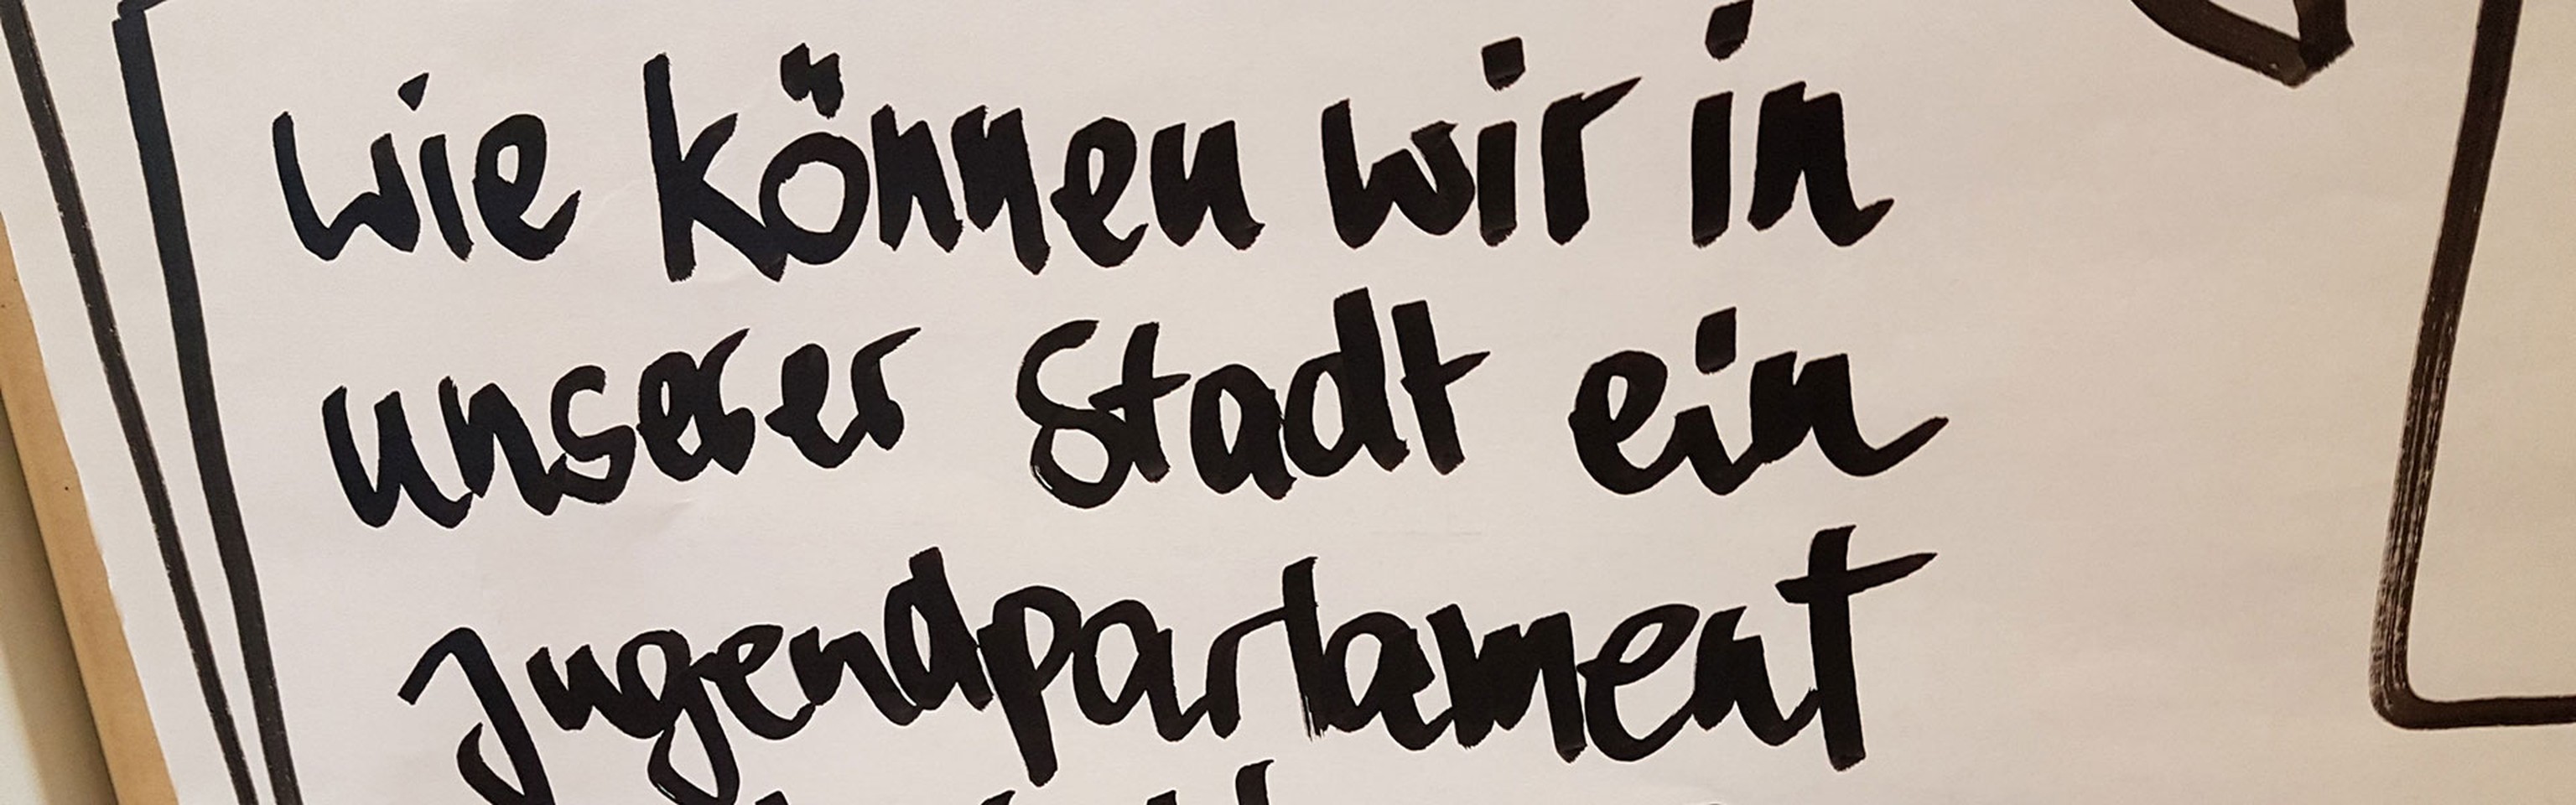 wie können wir in
unserer Stadt ein
Jugendparlament